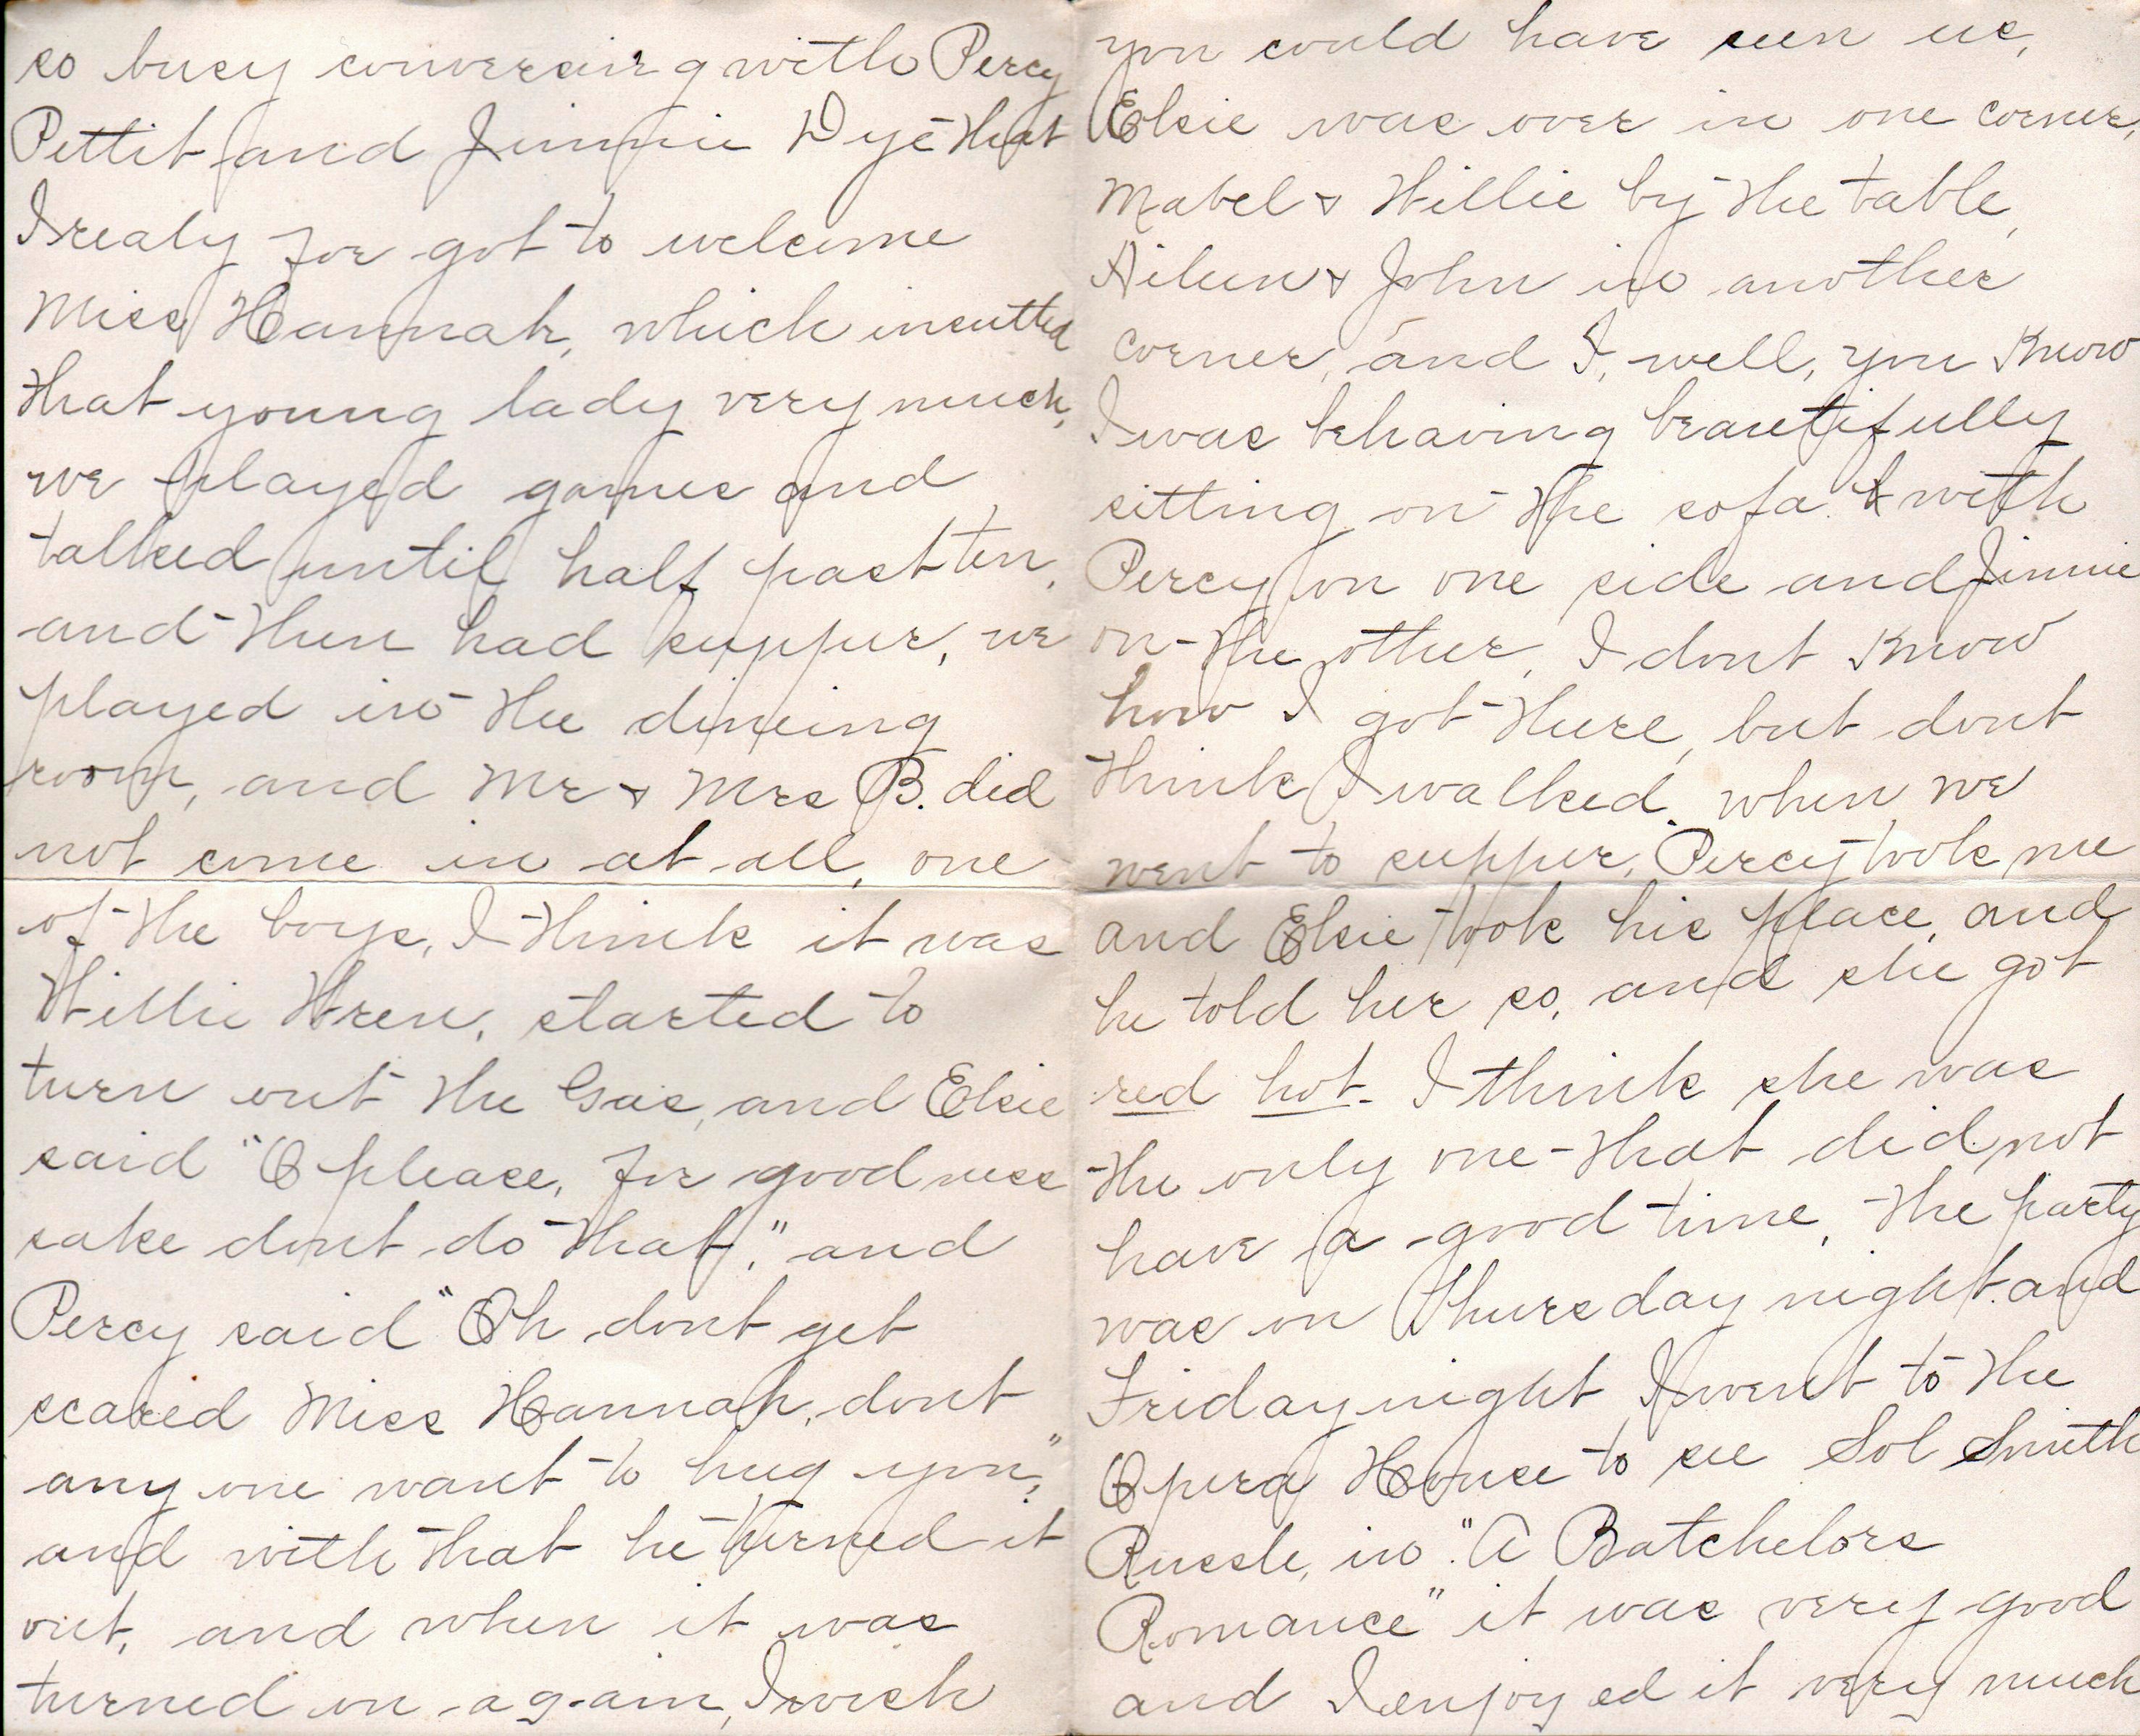 so busy conversing with Percy
Pettit and Jimmie Dye that
I realy for got to welcome
Miss Hannah, which insulted
that young lady very much,
we played games and
talked until half past ten,
and then had supper, we
played in the dineing
room, and Mr & Mrs B. did
not come in at all, one
of the boys, I think it was
Willie Wren, started to
turn out the Gas, and Elsie
said "O please, for goodness
sake dont do that," and
Percy said "Oh dont get
scared Miss Hannah, dont
any one want to hug you,"
and with that he turned it
out, and when it was
turned on again, I wish
you could have seen us,
Elsie was over in one corner,
Mabel & Willie by the table,
Aileen & John in another
corner, and I, well, you know
I was behaving beautifully
sitting on the sofa with
Percy on one side and Jimmie
on the other, I dont know
how I got there, but dont
think I walked. when we
went to supper, Percy took me
and Elsie took his place, and
he told her so, and she got
red hot. I think she was
the only one that did not
have a good time, the party
was on Thursday night and
Friday night I went to the
Opera House to see Sol Smith
Russle, in "A Batchelors
Romance" it was very good
and I enjoyed it very much